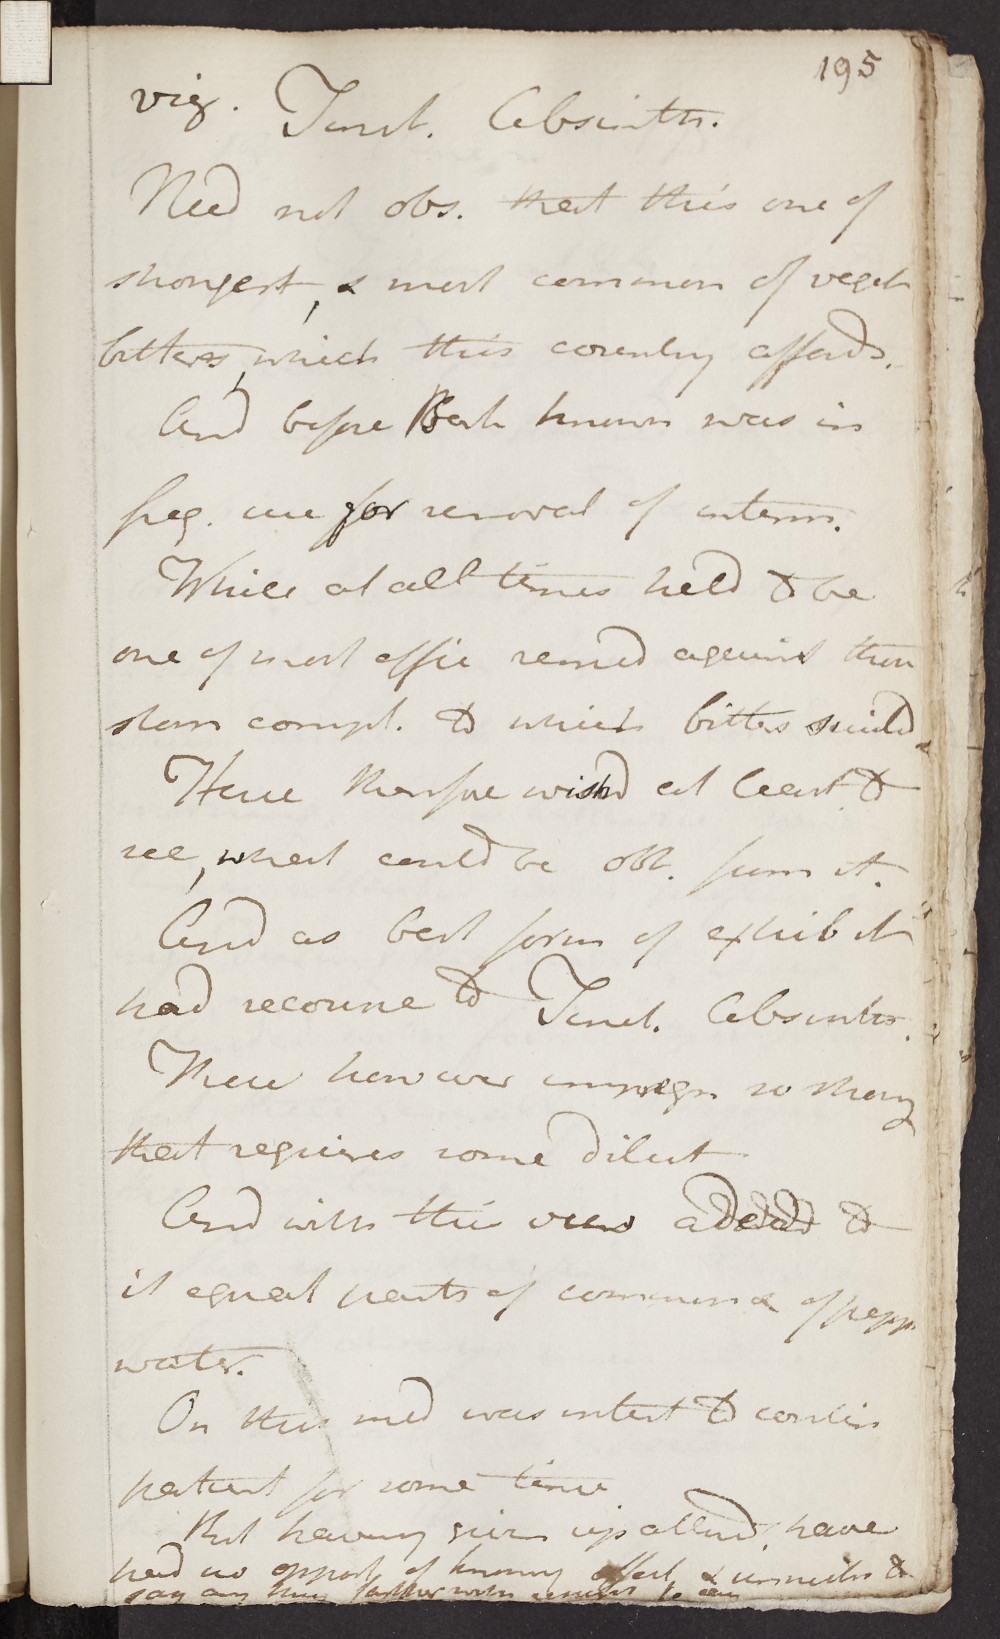 195
viz. Tinct. Absinth.
Need not obs. that this one of
strongest, & most common of veget
bitters, which this country affords.
And before Bark known was in
freq. use for removal of interm.
While at all times held to be
one of most effic remed against those
stom compl. to which bitters suited
Hence therefore wishd at least to
see, what could be obt. from it.
And as best form of exhib it
had recourse to Tinct. Absinth.
These however impregn. so strong
that requires some dilut
And with this view added to
it equal parts of common & of pepp.
water.
On this med was intent to contin
patient for some time
But having given up attend. have
had no opport. of knowing effect &
say any thing farther with respect to